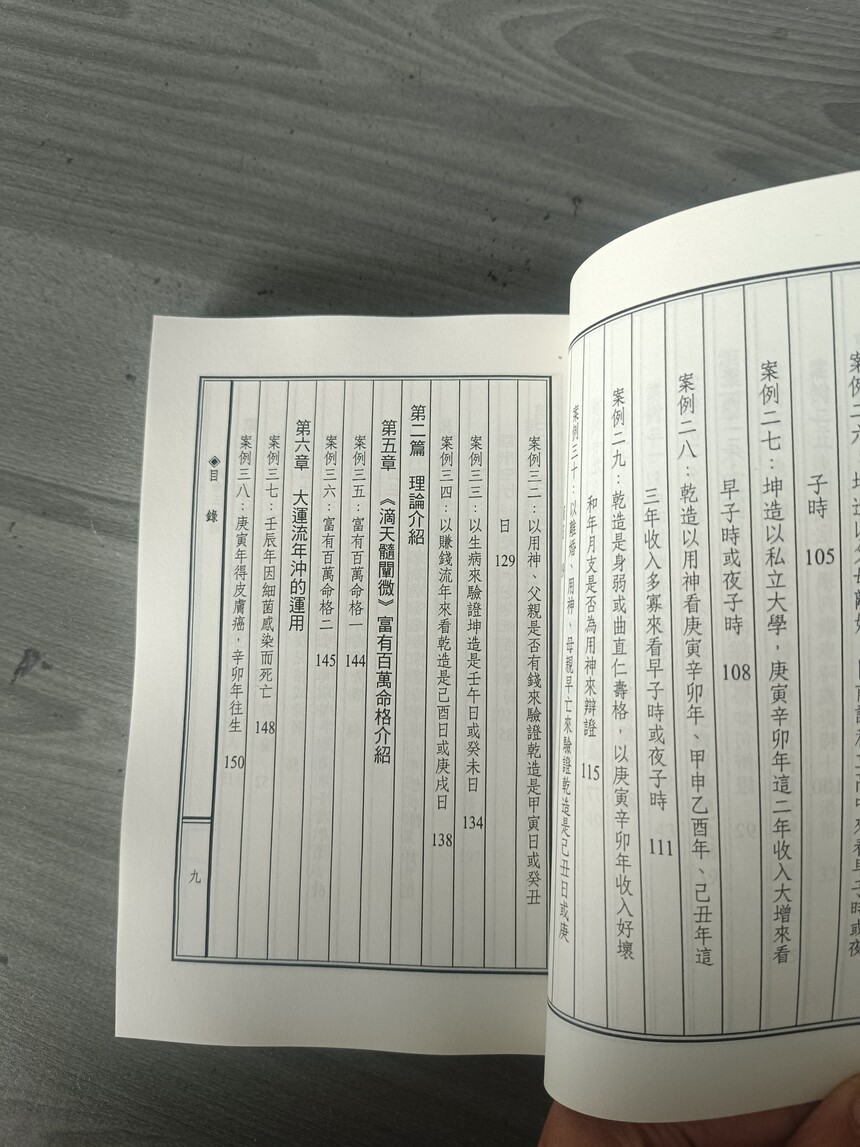 子時 105
案例二七：坤造以私立大學，庚寅辛卯年這二年收入大增來看
早子時或夜子時 108
案例二八：乾造以用神看庚寅辛卯年、甲申乙酉年、己丑年這
三年收入多寡來看早子時或夜子時 111
案例二九：乾造是身弱或曲直仁壽格，以庚寅辛卯年收入好壞
和年月支是否為用神來辯證 115
案例三十：以離婚、用神、母親早亡來驗證乾造是己丑日或庚
案例三二：以用神、父親是否有錢來驗證乾造是甲寅日或癸丑
日 129
案例三三：以生病來驗證坤造是壬午日或癸未日 134
案例三四：以賺錢流年來看乾造是己酉日或庚戌日 138
第二篇 理論介紹
第五章 《滴天髓闡微》富有百萬命格介紹
案例三五：富有百萬命格一 144
案例三六：富有百萬命格二 145
第六章 大運流年沖的運用
案例三七：壬辰年因細菌感染而死亡 148
案例三八：庚寅年得皮膚癌，辛卯年往生 150
◈目 錄
九